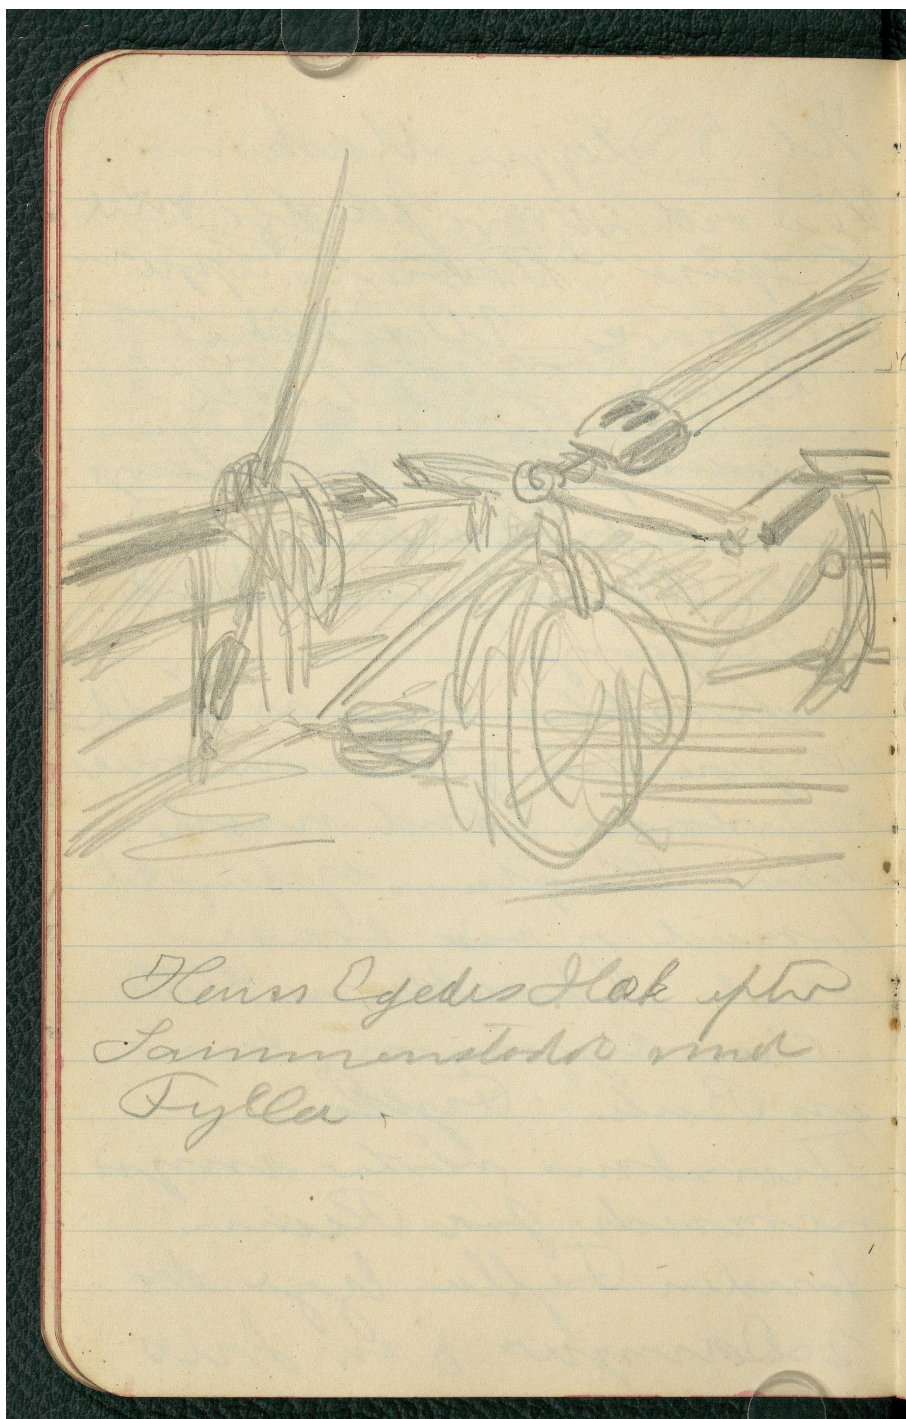 Hans Egedes Hæk efter
Sammenstødet med
Fylla.